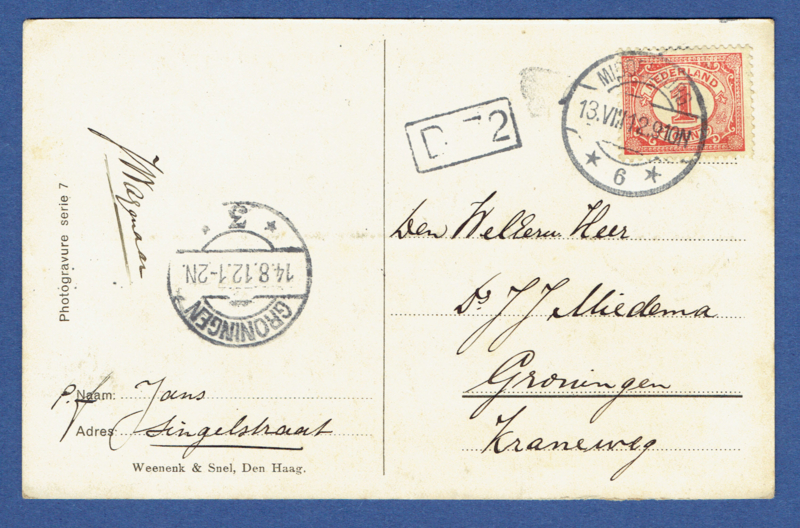 Photogravure serie 7
JWagenaar
GRONINGEN
14.8.12.1-2N.
3
p.f
Naam: Jans
Adres: Singelstraat
Weenenk & Snel, Den Haag.
D 72
13.VIII.12.9-10N
6
NEDERLAND
1
Den WelEerw Heer
Ds J J Miedema
Groningen
Kraneweg